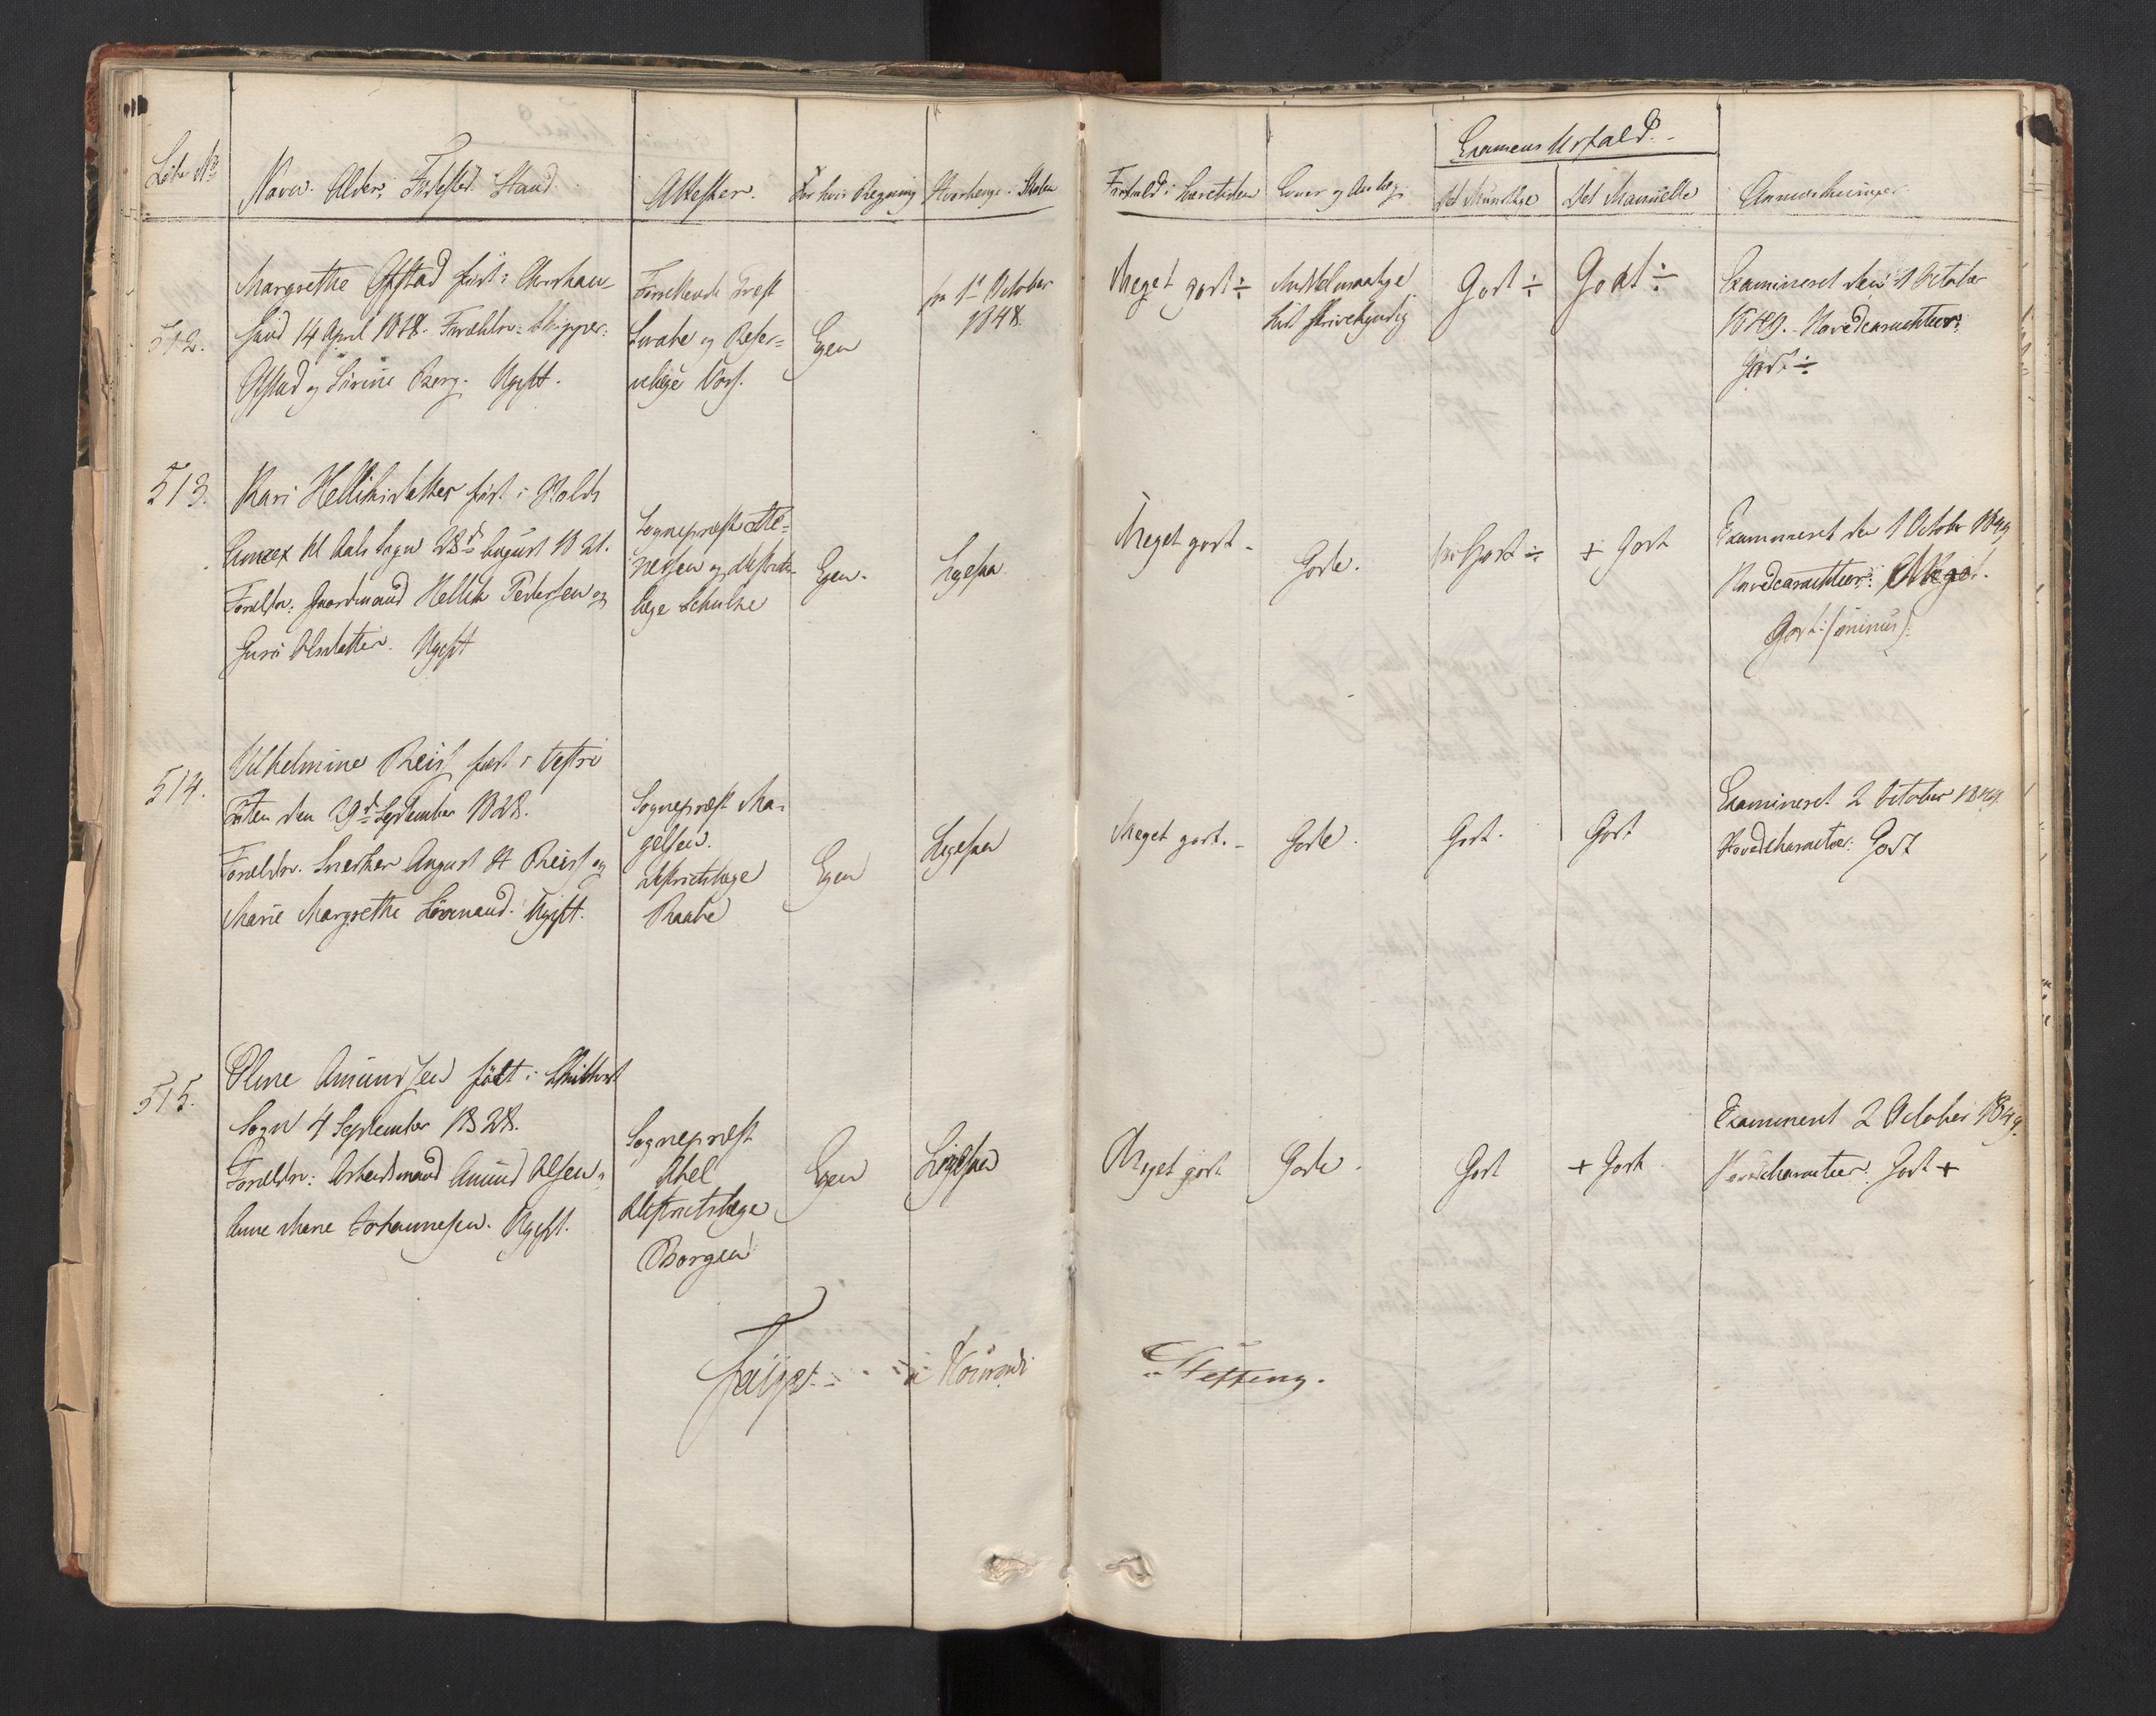 Løbe No
Navn. Alder, Fødested. Stand.
Attester.
For hvis Regning
Hvorlænge i Stalen
Forhold i Læretiden
Evner og Anlæg
Examens Udfald.
Det Mundtlige
Det Manuelle
Anmærkninger.
512.
Margrethe Offstad født i Christian
sund 14 April 1818. Forældre: Skipper
Offstad og Sirine Berg. Ugift.
Forrettende Præst
Lurabe og
Egen
fra 1ste October
1848.
Meget godt ÷
Middelmaatige
lidt skrivekyndig
Godt ÷
Godt ÷
Examineret den 1 October
1849. Hovedcaracteer:
Godt ÷
513.
Kari Helliksdatter født i Hols
Annex til Aals Sogn 28de August 1821.
Foreldre: Gaardmand Hellik Pedersen og
Guri Olsdatter. Ugift
Sognepræst
og Distrikts-
læge Schulze
Egen.
Ligesaa
Meget godt -
Gode.
Godt ÷
+ Godt
Examineret den 1 October 1849
Hovedcaracteer: Meget
Godt (minus)
514.
Vilhelmine Reiss født i Vestre
Toten den 29de September 1828.
Foreldre. Snedker August H Reiss og
Marie Margrethe Lovenand. Ugift.
Sognepræst Ma-
gelsen.
Districtslæge
Raabe
Egen
Ligesaa
Meget godt. -
Gode.
Godt.
Godt
Examineret 2 October 1849.
Hovedcharacteer: Godt
515.
Oline Amundsen født i
Sogn 4 September 1828.
Foreldre: Arbeidsmand Amund Olsen
Anne Marie Johannesen. Ugift.
Sognepræst
Abel
Districtslæge
Borgen
Egen
Ligesaa
Meget godt
Gode.
Godt
+ Godt
Examineret 2 October 1849.
Hovedcharacteer: Godt +
Steffens.